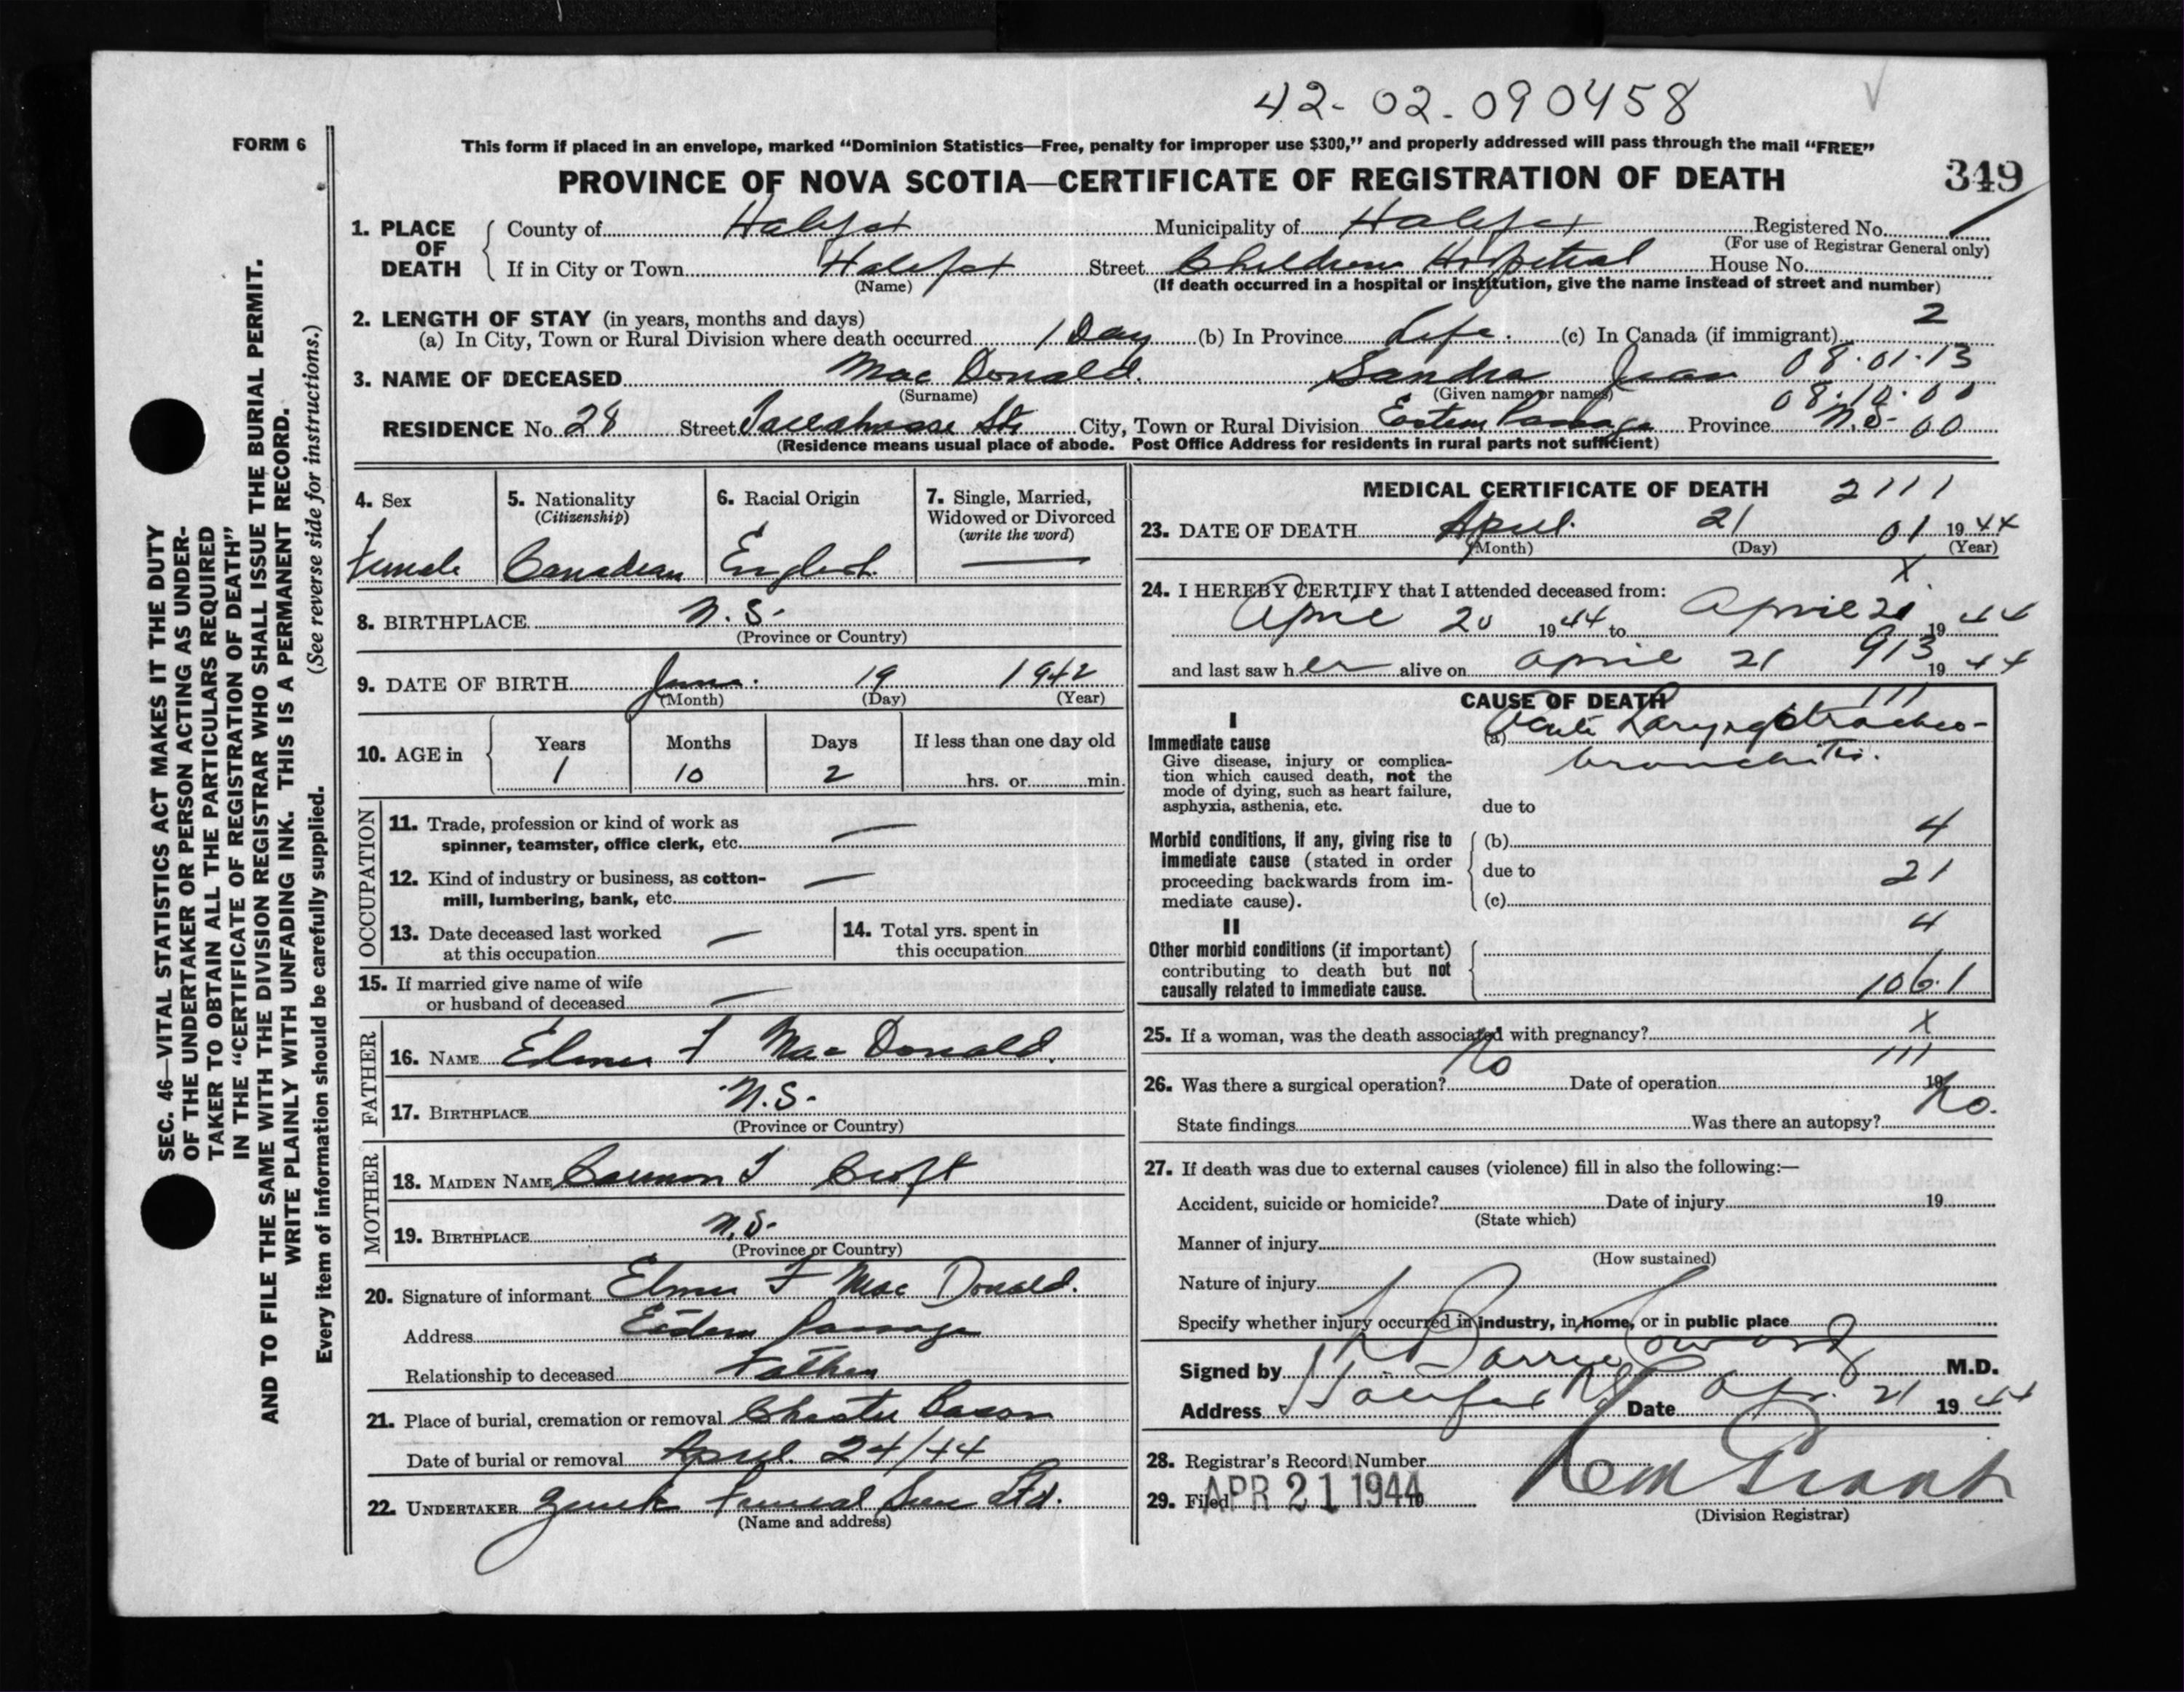 42-02-090458
FORM 6
This form if placed in an envelope, marked “Dominion Statistics—Free, penalty for improper use $300,” and properly addressed will pass through the mail “FREE”
PROVINCE OF NOVA SCOTIA—CERTIFICATE OF REGISTRATION OF DEATH
349
1. PLACE OF DEATH
County of Halifax Municipality of Halifax Registered No.
(For use of Registrar General only)
If in City or Town Halifax Street Childrens Hospital House No.
(Name) (If death occurred in a hospital or institution, give the name instead of street and number)
2. LENGTH OF STAY (in years, months and days)
(a) In City, Town or Rural Division where death occurred 1 Day (b) In Province Life. (c) In Canada (if immigrant) 2
08.01.13
3. NAME OF DECEASED Mac Donald. Sandra Jean
(Surname) (Given name or names)
08.10.00
RESIDENCE No. 28 Street Tallahasse St. City, Town or Rural Division Eastern Passage Province N.S- 00
(Residence means usual place of abode. Post Office Address for residents in rural parts not sufficient)
4. Sex Female
5. Nationality (Citizenship) Canadian
6. Racial Origin English
7. Single, Married, Widowed or Divorced (write the word) —
8. BIRTHPLACE N.S-
(Province or Country)
9. DATE OF BIRTH June. 19 1942
(Month) (Day) (Year)
10. AGE in
Years Months Days If less than one day old
1 10 2 hrs. or min.
OCCUPATION
11. Trade, profession or kind of work as
spinner, teamster, office clerk, etc. —
12. Kind of industry or business, as cotton-
mill, lumbering, bank, etc. —
13. Date deceased last worked
at this occupation —
14. Total yrs. spent in
this occupation
15. If married give name of wife
or husband of deceased —
FATHER
16. NAME Elmer F Mac Donald.
17. BIRTHPLACE N.S-
(Province or Country)
MOTHER
18. MAIDEN NAME Croft
19. BIRTHPLACE N.S-
(Province or Country)
20. Signature of informant Elmer F Mac Donald.
Address Eastern Passage
Relationship to deceased Father
21. Place of burial, cremation or removal Chester Bason
Date of burial or removal April. 24/44
22. UNDERTAKER Funeral Ltd.
(Name and address)
MEDICAL CERTIFICATE OF DEATH 2111
23. DATE OF DEATH April. 21 01 1944
(Month) (Day) (Year)
X
24. I HEREBY CERTIFY that I attended deceased from:
April 20 1944 to April 21 1944
913
and last saw her alive on April 21 1944
CAUSE OF DEATH
111
I
Immediate cause
Give disease, injury or complica-
tion which caused death, not the
mode of dying, such as heart failure,
asphyxia, asthenia, etc.
(a) Acute Laryngotracheo-
bronchitis.
due to
Morbid conditions, if any, giving rise to
immediate cause (stated in order
proceeding backwards from im-
mediate cause).
(b) 4
due to 21
(c)
II
4
Other morbid conditions (if important)
contributing to death but not
causally related to immediate cause.
106.1
25. If a woman, was the death associated with pregnancy? X
111
26. Was there a surgical operation? No Date of operation 19
State findings Was there an autopsy? No.
27. If death was due to external causes (violence) fill in also the following:—
Accident, suicide or homicide? Date of injury 19
(State which)
Manner of injury
(How sustained)
Nature of injury
Specify whether injury occurred in industry, in home, or in public place
Signed by Barrie Coward M.D.
Address Halifax NS Date Apr. 21 1944
28. Registrar's Record Number
29. Filed APR 21 1944 19
(Division Registrar)
SEC. 46—VITAL STATISTICS ACT MAKES IT THE DUTY
OF THE UNDERTAKER OR PERSON ACTING AS UNDER-
TAKER TO OBTAIN ALL THE PARTICULARS REQUIRED
IN THE “CERTIFICATE OF REGISTRATION OF DEATH”
AND TO FILE THE SAME WITH THE DIVISION REGISTRAR WHO SHALL ISSUE THE BURIAL PERMIT.
WRITE PLAINLY WITH UNFADING INK. THIS IS A PERMANENT RECORD.
Every item of information should be carefully supplied. (See reverse side for instructions.)